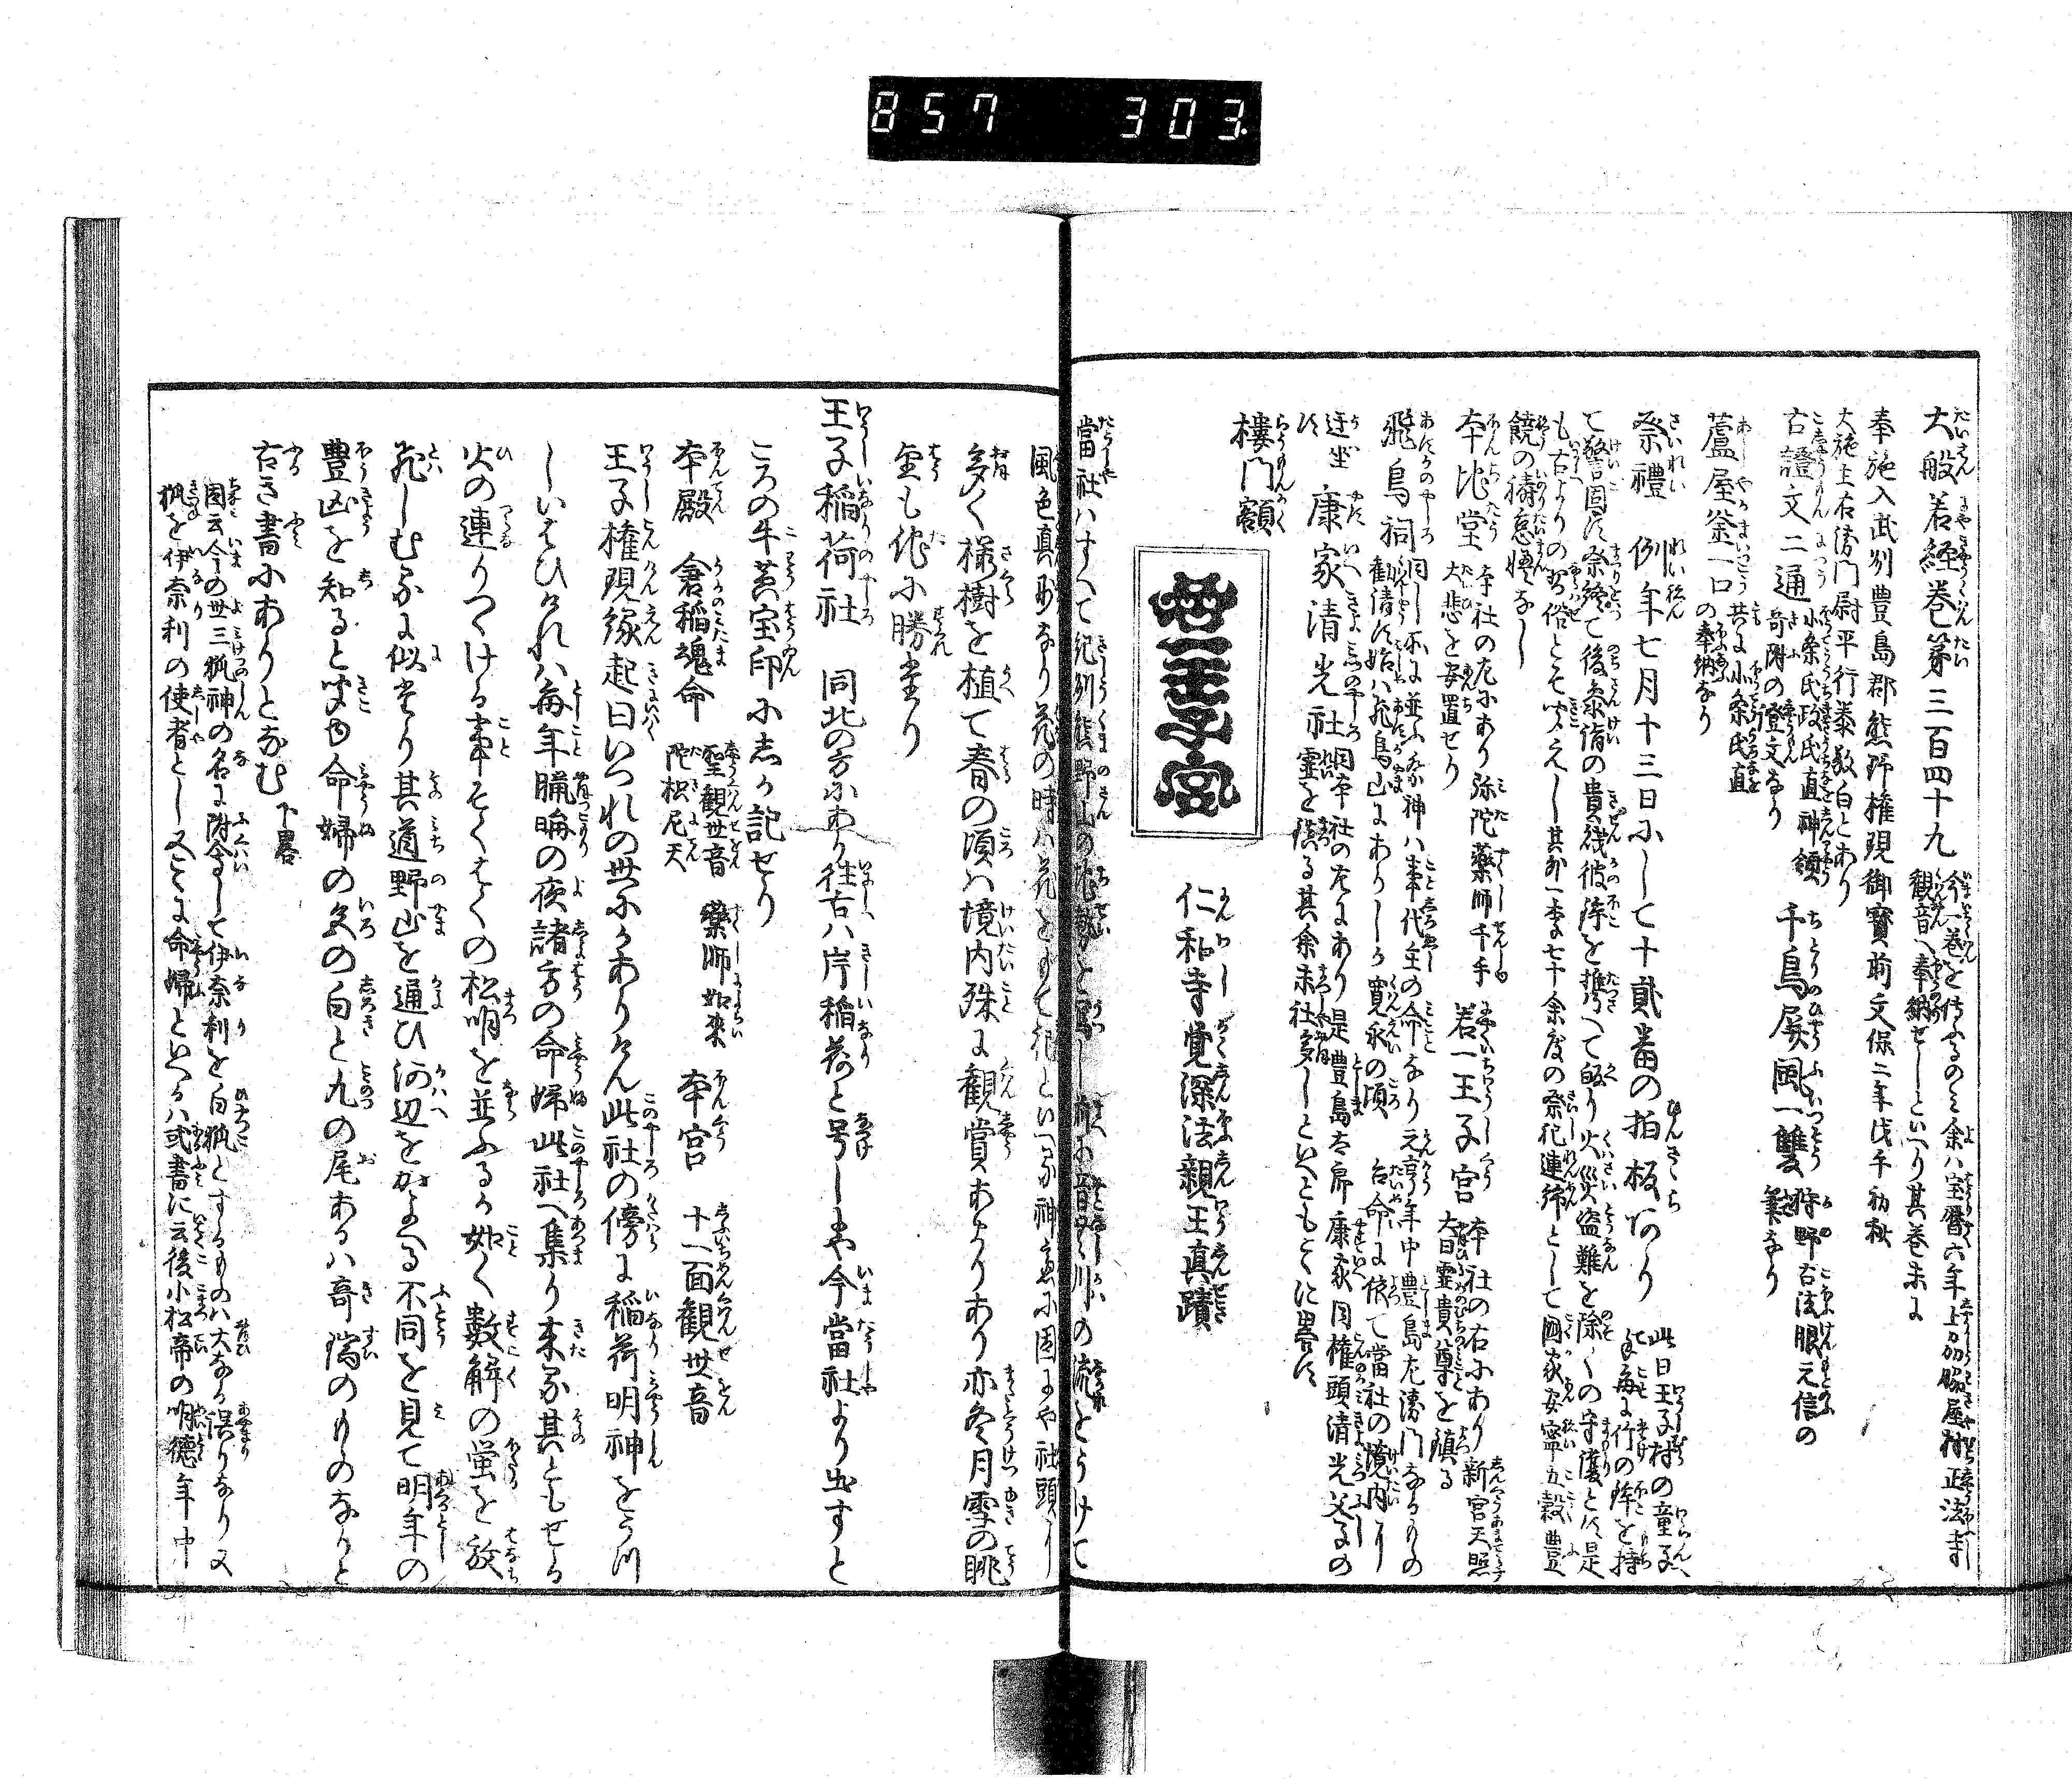 857 303
大般若経巻第三百四十九 今一巻を伝ふるのミ余ハ宝暦六年上州脇屋村正法寺
観音へ奉納せしといへり其巻末に
奉施入武州豊島郡熊野権現御寳前文保二年戊午初秋
大施主右衛門尉平行泰敬白とあり
古證文二通 小条氏政氏直神領
寄附の證文なり 千鳥屏風一雙 狩野古法眼元信の
筆なり
蘆屋釜一口 共に小条氏直
の奉納なり
祭禮 例年七月十三日にして十貳番の拍板あり 此日王子村の童子
毎に竹の鉾を持
て警固す祭終て後参詣の貴賎彼鉾を携へて皈り火災盗難を除くの守護とす是
も古よりの習俗とそ聞えし其外一季七十余度の祭祀連綿として國家安寧五穀豊
饒の祷怠慢なし
本地堂 本社の左にあり弥陀薬師千手
大悲を安置せり 若一王子宮 本社の右にあり新宮天照
大日霊貴尊を鎮る
飛鳥祠 同し所に並ふ祭神ハ事代主の命なり元亨年中豊島左衛門なるものゝ
勧請す始ハ飛鳥山にありしか寛永の頃 台命に依て當社の境内に
迁坐
す 康家清光社 同本社の左にあり是豊島太郎康家同権頭清光父子の
霊を鎮る其余末社多しといへともこゝに畧す
樓門額
若一王子宮
仁和寺覚深法親王真蹟
當社ハすへて紀州熊野山の地勢を寫し前に音無川の流をうけて
風色真妙なり花の時ハ花をもて祀といへる神慮に因にや社頭に
多く櫻樹を植て春の頃ハ境内殊に観賞ありあり亦冬月雪の眺
望も他に勝たり
王子稲荷社 同北の方にあり往古ハ岸稲荷と号しとや今當社より出すと
ころの牛黄宝印にしか記せり
本殿 倉稲魂命 聖観世音 薬師如来
陀枳尼天 本宮 十一面観世音
王子権現縁起曰いつれの世にかありけん此社の傍に稲荷明神をうつ
しいはひけれハ毎年臘晦の夜諸方の命婦此社へ集り来る其ともせる
火の連りつゝける事そくはくの松明を並ふるか如く數斛の蛍を放
飛しむるに似たり其道野山を通ひ河辺をかよへる不同を見て明年の
豊凶を知ると聞ゆ命婦の色の白と九の尾あるハ奇瑞のものなりと
古き書にありとなむ 下畧
因云今の世三狐神の名に附會して伊奈利を白狐とするものハ大なる誤りなり又
狐を伊奈利の使者とし又こゝに命婦といへるハ或書に云後小松帝の明徳年中